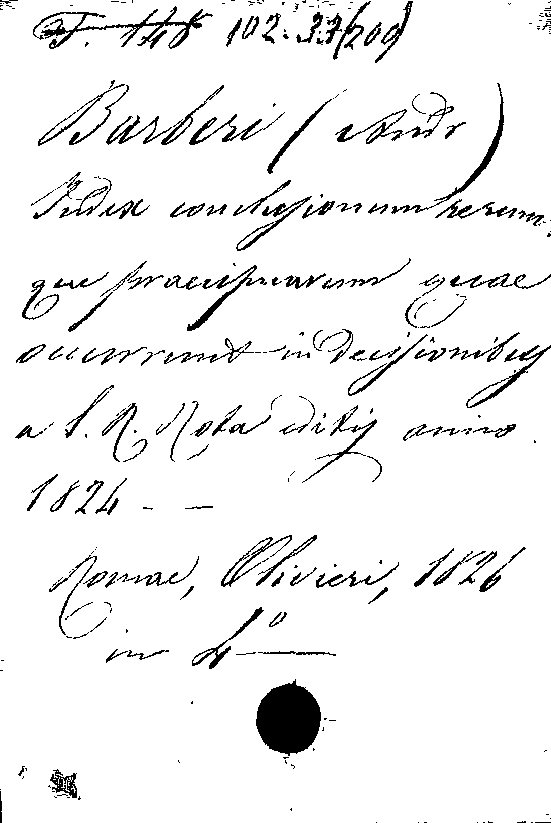 F. 148 102.33(209)
Barberi (Andr)
Index conclusionum rerum-
que praecipuarum quae
occurrunt in Decisionibus
a S. R. Rota editis anno
1824 - -
Romae, Olivieri, 1826
in 4°